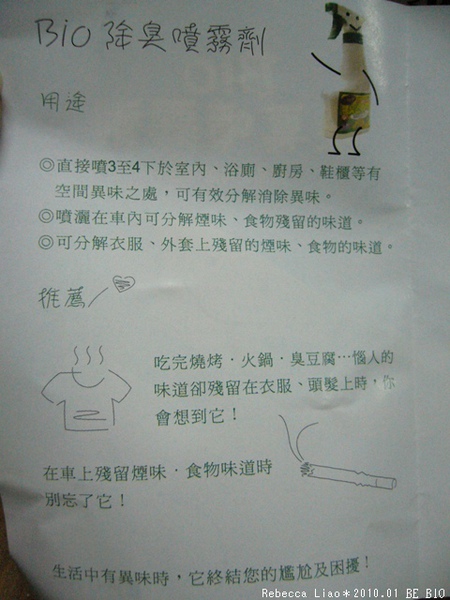 Bio 除臭噴霧劑
用途
◎直接噴3至4下於室內、浴廁、廚房、鞋櫃等有
空間異味之處，可有效分解消除異味。
◎噴灑在車內可分解煙味、食物殘留的味道。
◎可分解衣服、外套上殘留的煙味、食物的味道。
推薦
吃完燒烤．火鍋．臭豆腐…惱人的
味道卻殘留在衣服、頭髮上時，你
會想到它！
在車上殘留煙味．食物味道時
別忘了它！
生活中有異味時，它終結您的尷尬及困擾！
Rebecca Liao＊2010.01 BE BIO